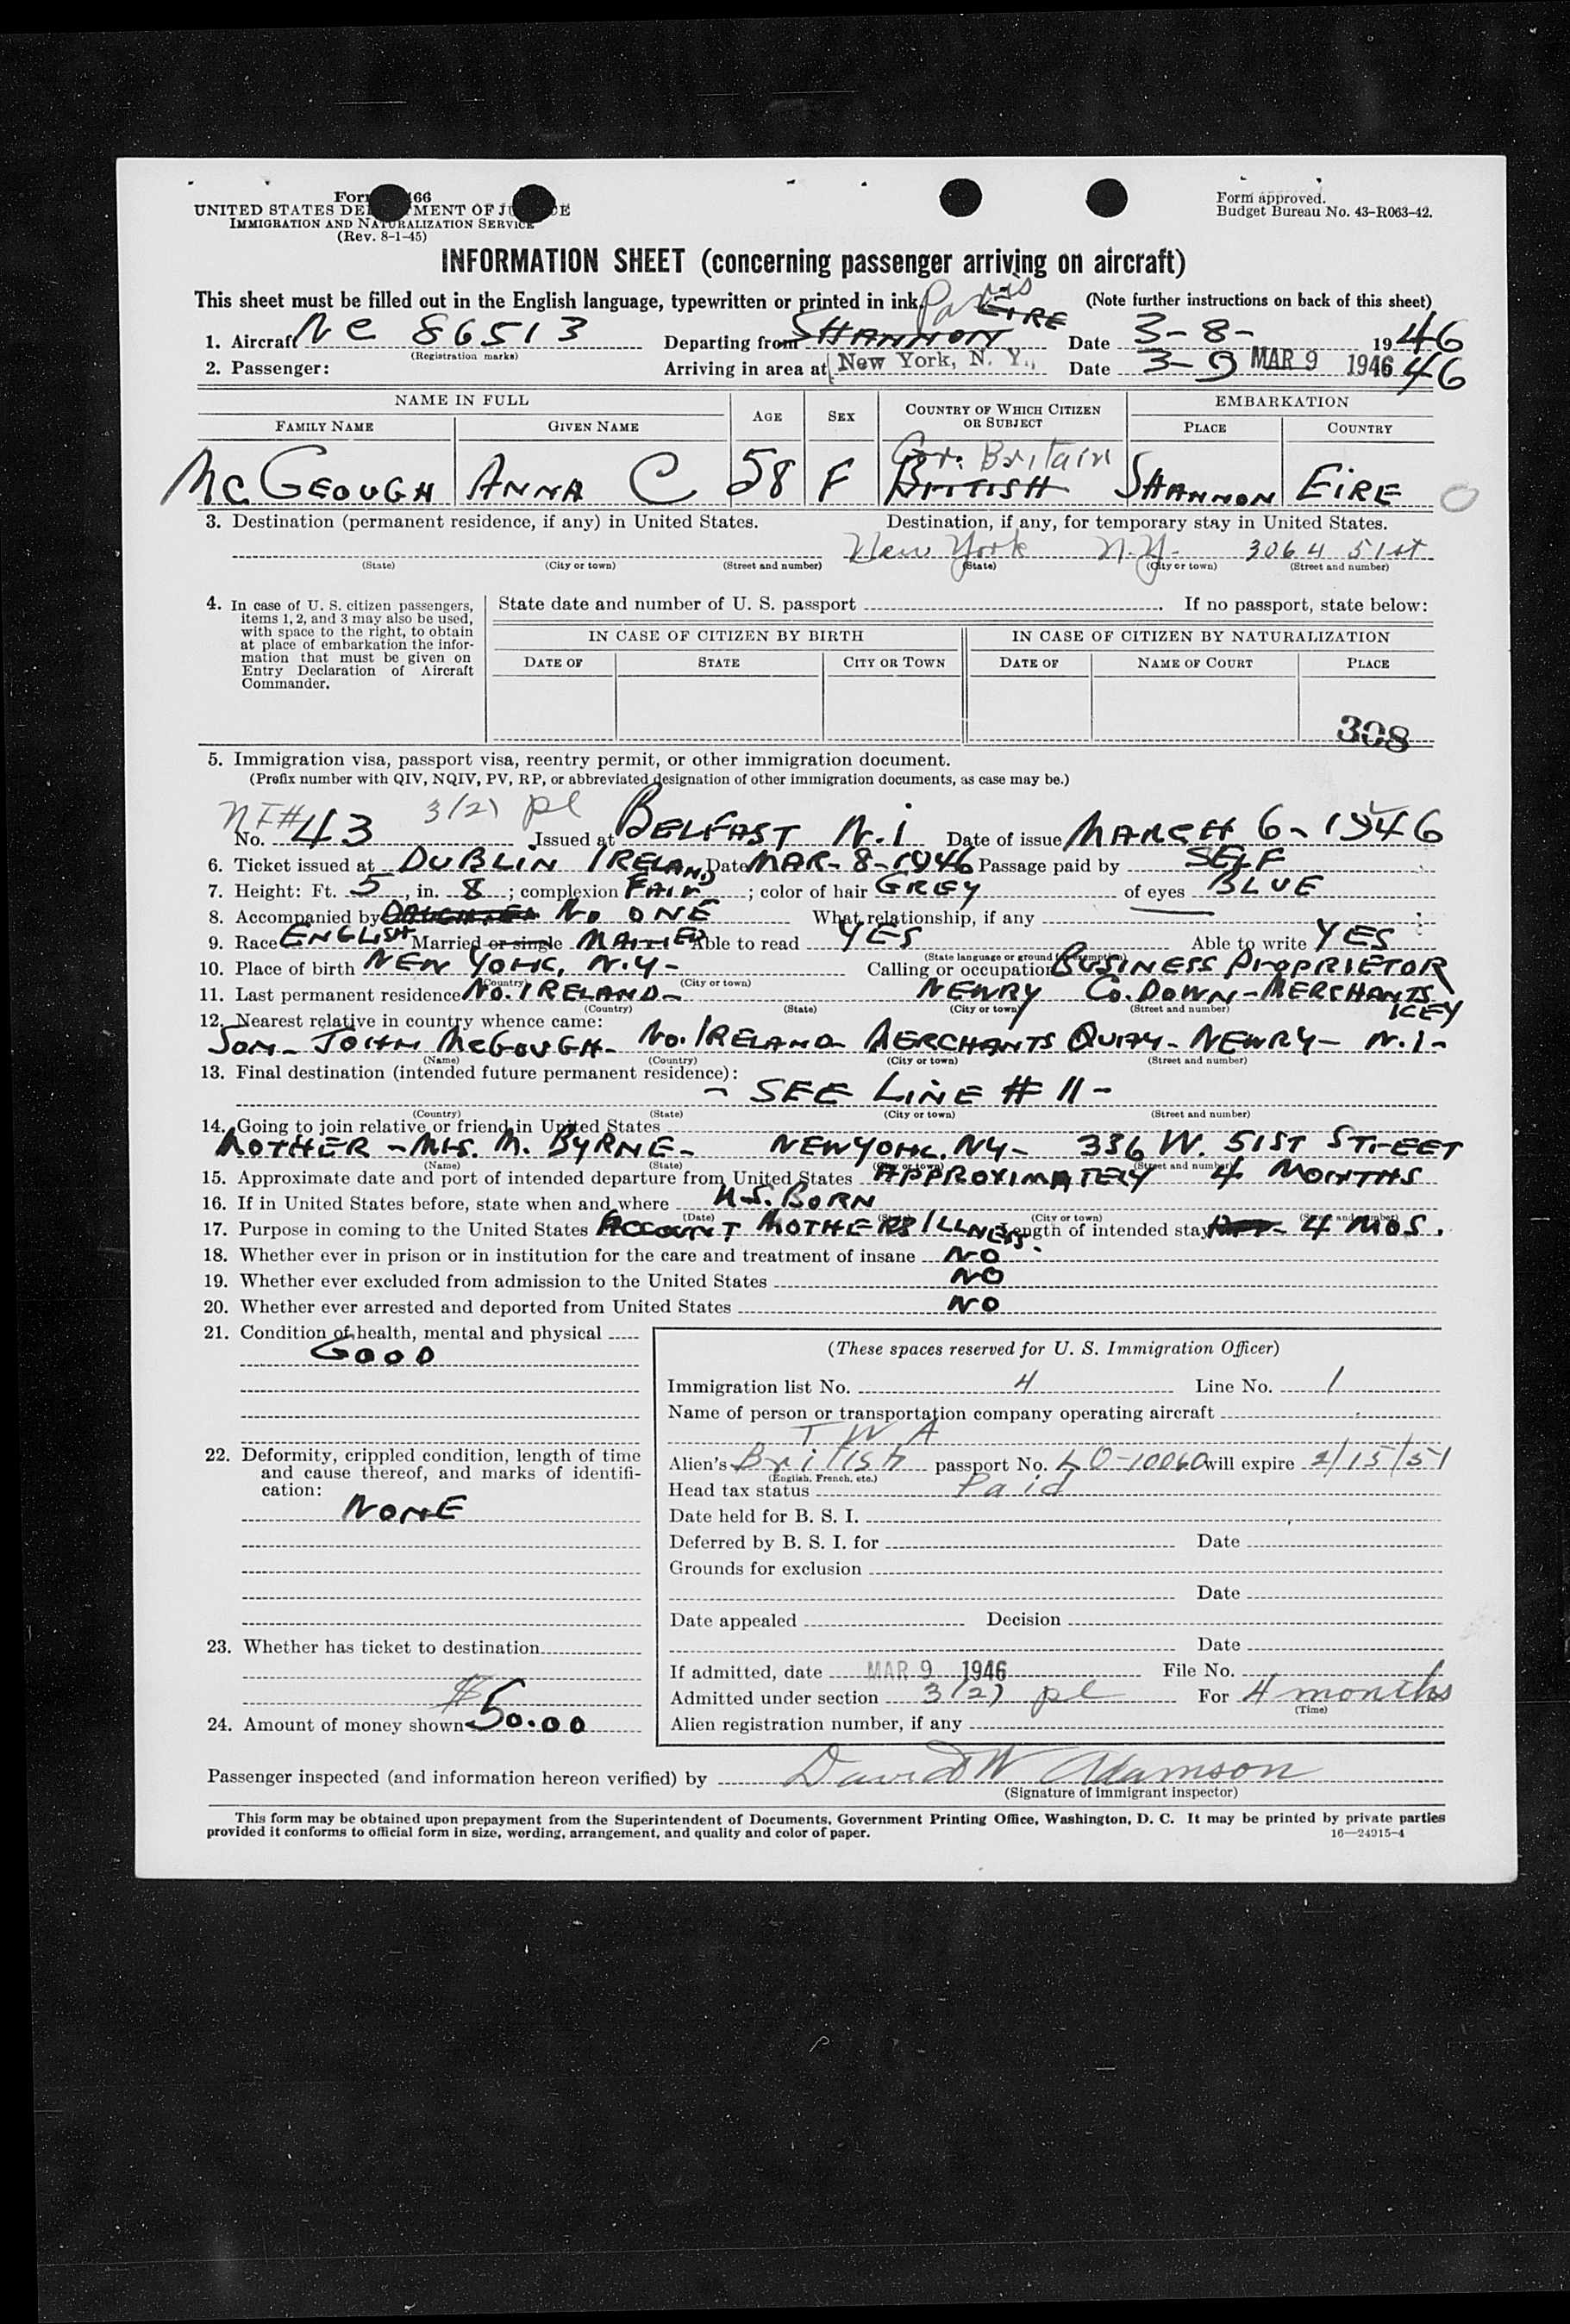 For 466
UNITED STATES DE MENT OF JU CE
IMMIGRATION AND NATURALIZATION SERVICE
(Rev. 8-1-45)
Form approved.
Budget Bureau No. 43-R063-42.
INFORMATION SHEET (concerning passenger arriving on aircraft)
This sheet must be filled out in the English language, typewritten or printed in ink. Paris (Note further instructions on back of this sheet)
1. Aircraft NC 86513 Departing from SHANNON EIRE Date 3-8- 1946
(Registration marks)
2. Passenger: Arriving in area at New York, N. Y., Date 3-9 MAR 9 1946 46
NAME IN FULL AGE SEX COUNTRY OF WHICH CITIZEN OR SUBJECT EMBARKATION
FAMILY NAME GIVEN NAME PLACE COUNTRY
Gr. Britain
McGEOUGH ANNA C 58 F BRITISH SHANNON EIRE
3. Destination (permanent residence, if any) in United States. Destination, if any, for temporary stay in United States.
New York N.Y. 51st
(State) (City or town) (Street and number) (State) (City or town) (Street and number)
4. In case of U. S. citizen passengers, items 1, 2, and 3 may also be used, with space to the right, to obtain at place of embarkation the information that must be given on Entry Declaration of Aircraft Commander.
State date and number of U. S. passport . If no passport, state below:
IN CASE OF CITIZEN BY BIRTH IN CASE OF CITIZEN BY NATURALIZATION
DATE OF STATE CITY OR TOWN DATE OF NAME OF COURT PLACE
308
5. Immigration visa, passport visa, reentry permit, or other immigration document.
(Prefix number with QIV, NQIV, PV, RP, or abbreviated designation of other immigration documents, as case may be.)
3(2) pl
No. 43 Issued at BELFAST N.I Date of issue MARCH 6-1946
6. Ticket issued at DUBLIN IRELAND Date MAR-8-1946 Passage paid by SELF
7. Height: Ft. 5, in. 8; complexion FAIR; color of hair GREY of eyes BLUE
8. Accompanied by DAUGHTER NO ONE What relationship, if any
9. Race ENGLISH Married or single MARRIED Able to read YES Able to write YES
(State language or ground for exemption)
10. Place of birth NEW YORK, N.Y- Calling or occupation BUSINESS PROPRIETOR
(Country) (City or town)
11. Last permanent residence NO. IRELAND- NEWRY CO. DOWN- MERCHANTS
(Country) (State) (City or town) (Street and number)
12. Nearest relative in country whence came:
SON- JOHN McGOUGH- NO. IRELAND- MERCHANTS QUAY- NEWRY- N.I-
(Name) (Country) (City or town) (Street and number)
13. Final destination (intended future permanent residence):
- SEE LINE # 11-
(Country) (State) (City or town) (Street and number)
14. Going to join relative or friend in United States
MOTHER - MRS. M. BYRNE- NEW YORK. NY- 336 W. 51ST STREET
(Name) (State) (City or town) (Street and number)
15. Approximate date and port of intended departure from United States APPROXIMATELY 4 MONTHS
16. If in United States before, state when and where U.S. BORN
(Date) (State) (City or town) (Street and number)
17. Purpose in coming to the United States ACCOUNT MOTHERS ILLNESS. Length of intended stay 4 MOS.
18. Whether ever in prison or in institution for the care and treatment of insane NO
19. Whether ever excluded from admission to the United States NO
20. Whether ever arrested and deported from United States NO
21. Condition of health, mental and physical
GOOD
22. Deformity, crippled condition, length of time and cause thereof, and marks of identification:
NONE
23. Whether has ticket to destination
24. Amount of money shown $50.00
(These spaces reserved for U. S. Immigration Officer)
Immigration list No. 4 Line No. 1
Name of person or transportation company operating aircraft
TWA
Alien's British passport No. LO-10060 will expire 2/15/51
(English, French, etc.)
Head tax status Paid
Date held for B. S. I.
Deferred by B. S. I. for Date
Grounds for exclusion
Date
Date appealed Decision
Date
If admitted, date MAR 9 1946 File No.
Admitted under section 3(2) pl For 4 months
(Time)
Alien registration number, if any
Passenger inspected (and information hereon verified) by David W Adamson
(Signature of immigrant inspector)
This form may be obtained upon prepayment from the Superintendent of Documents, Government Printing Office, Washington, D. C. It may be printed by private parties
provided it conforms to official form in size, wording, arrangement, and quality and color of paper.
16—24915-4